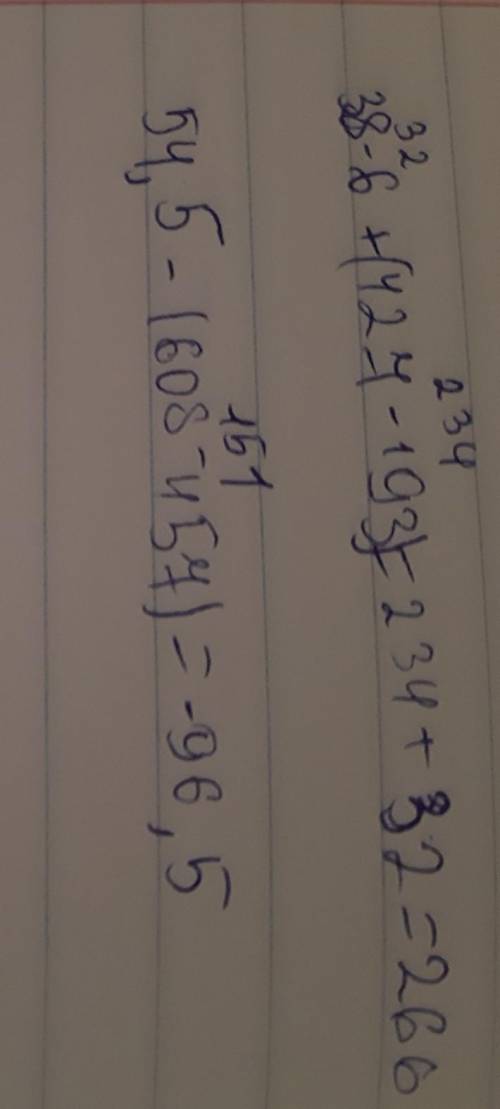 32 234
38-6+(427-193)=234+32=266
151
54,5-(608-457)=-96,5